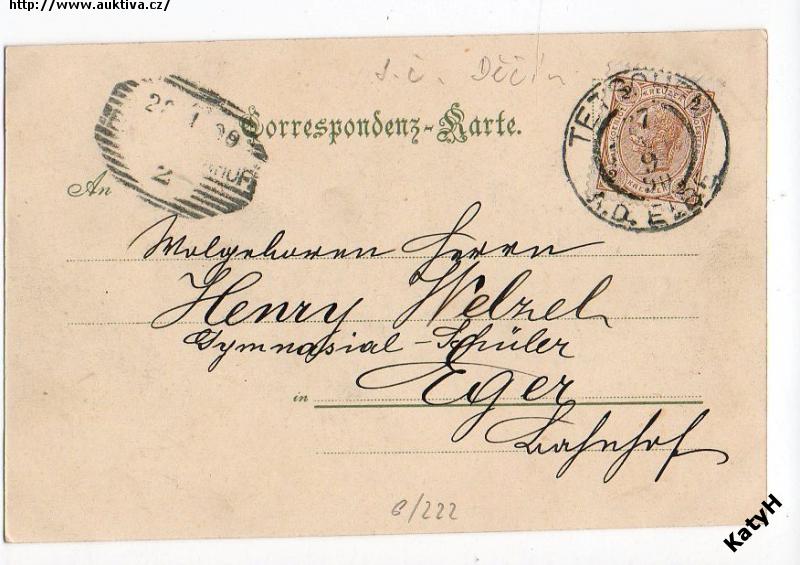 http://www.auktiva.cz/
s.č. Děčín
Correspondenz-Karte.
KREUZER
TETSCHEN
A.D. ELBE
2
An
Wolgeboren Herrn
Henry Welzel
Gymnasial-Schüler
in Eger
Bahnhof
6/222
KatyH